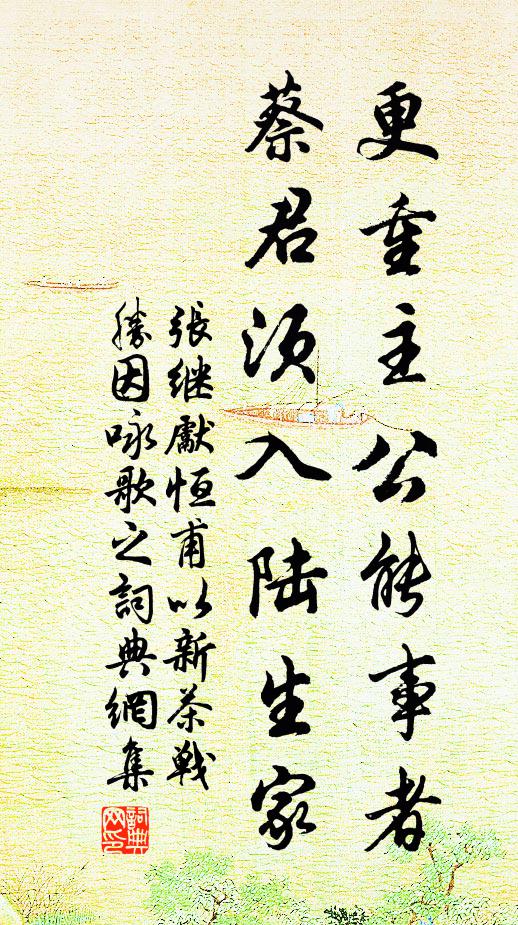 更重主公能事者
蔡君须入陆生家
張继獻恒甫以新茶戦
勝因咏歌之詞典網集
詞典
网印